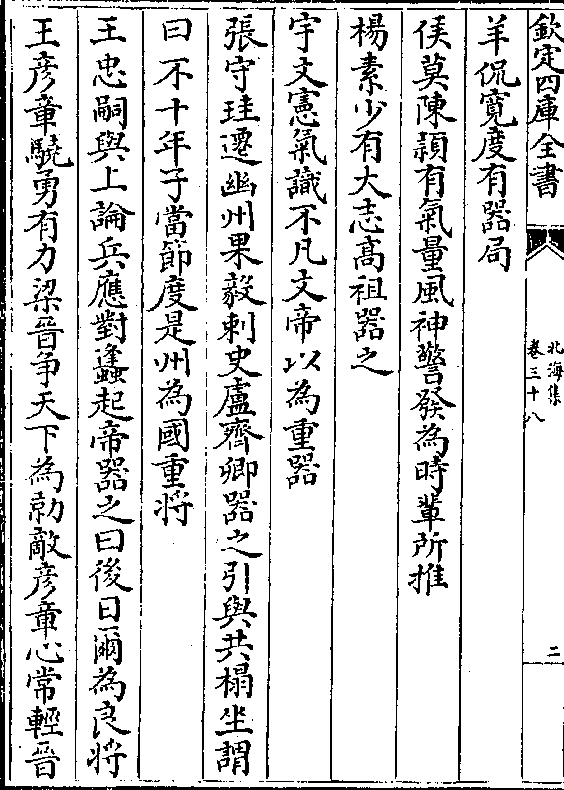 欽定四庫全書
北海集
卷三十八
二
羊侃寬度有器局
侯莫陳頴有氣量風神警發為時輩所推
楊素少有大志高祖器之
宇文憲氣識不凡文帝以為重器
張守珪遷幽州果毅刺史盧齊卿器之引與共榻坐謂
曰不十年子當節度是州為國重将
王忠嗣與上論兵應對蠭起帝器之曰後日爾為良将
王彦章驍勇有力梁晉争天下為勍敵彦章心常輕晉